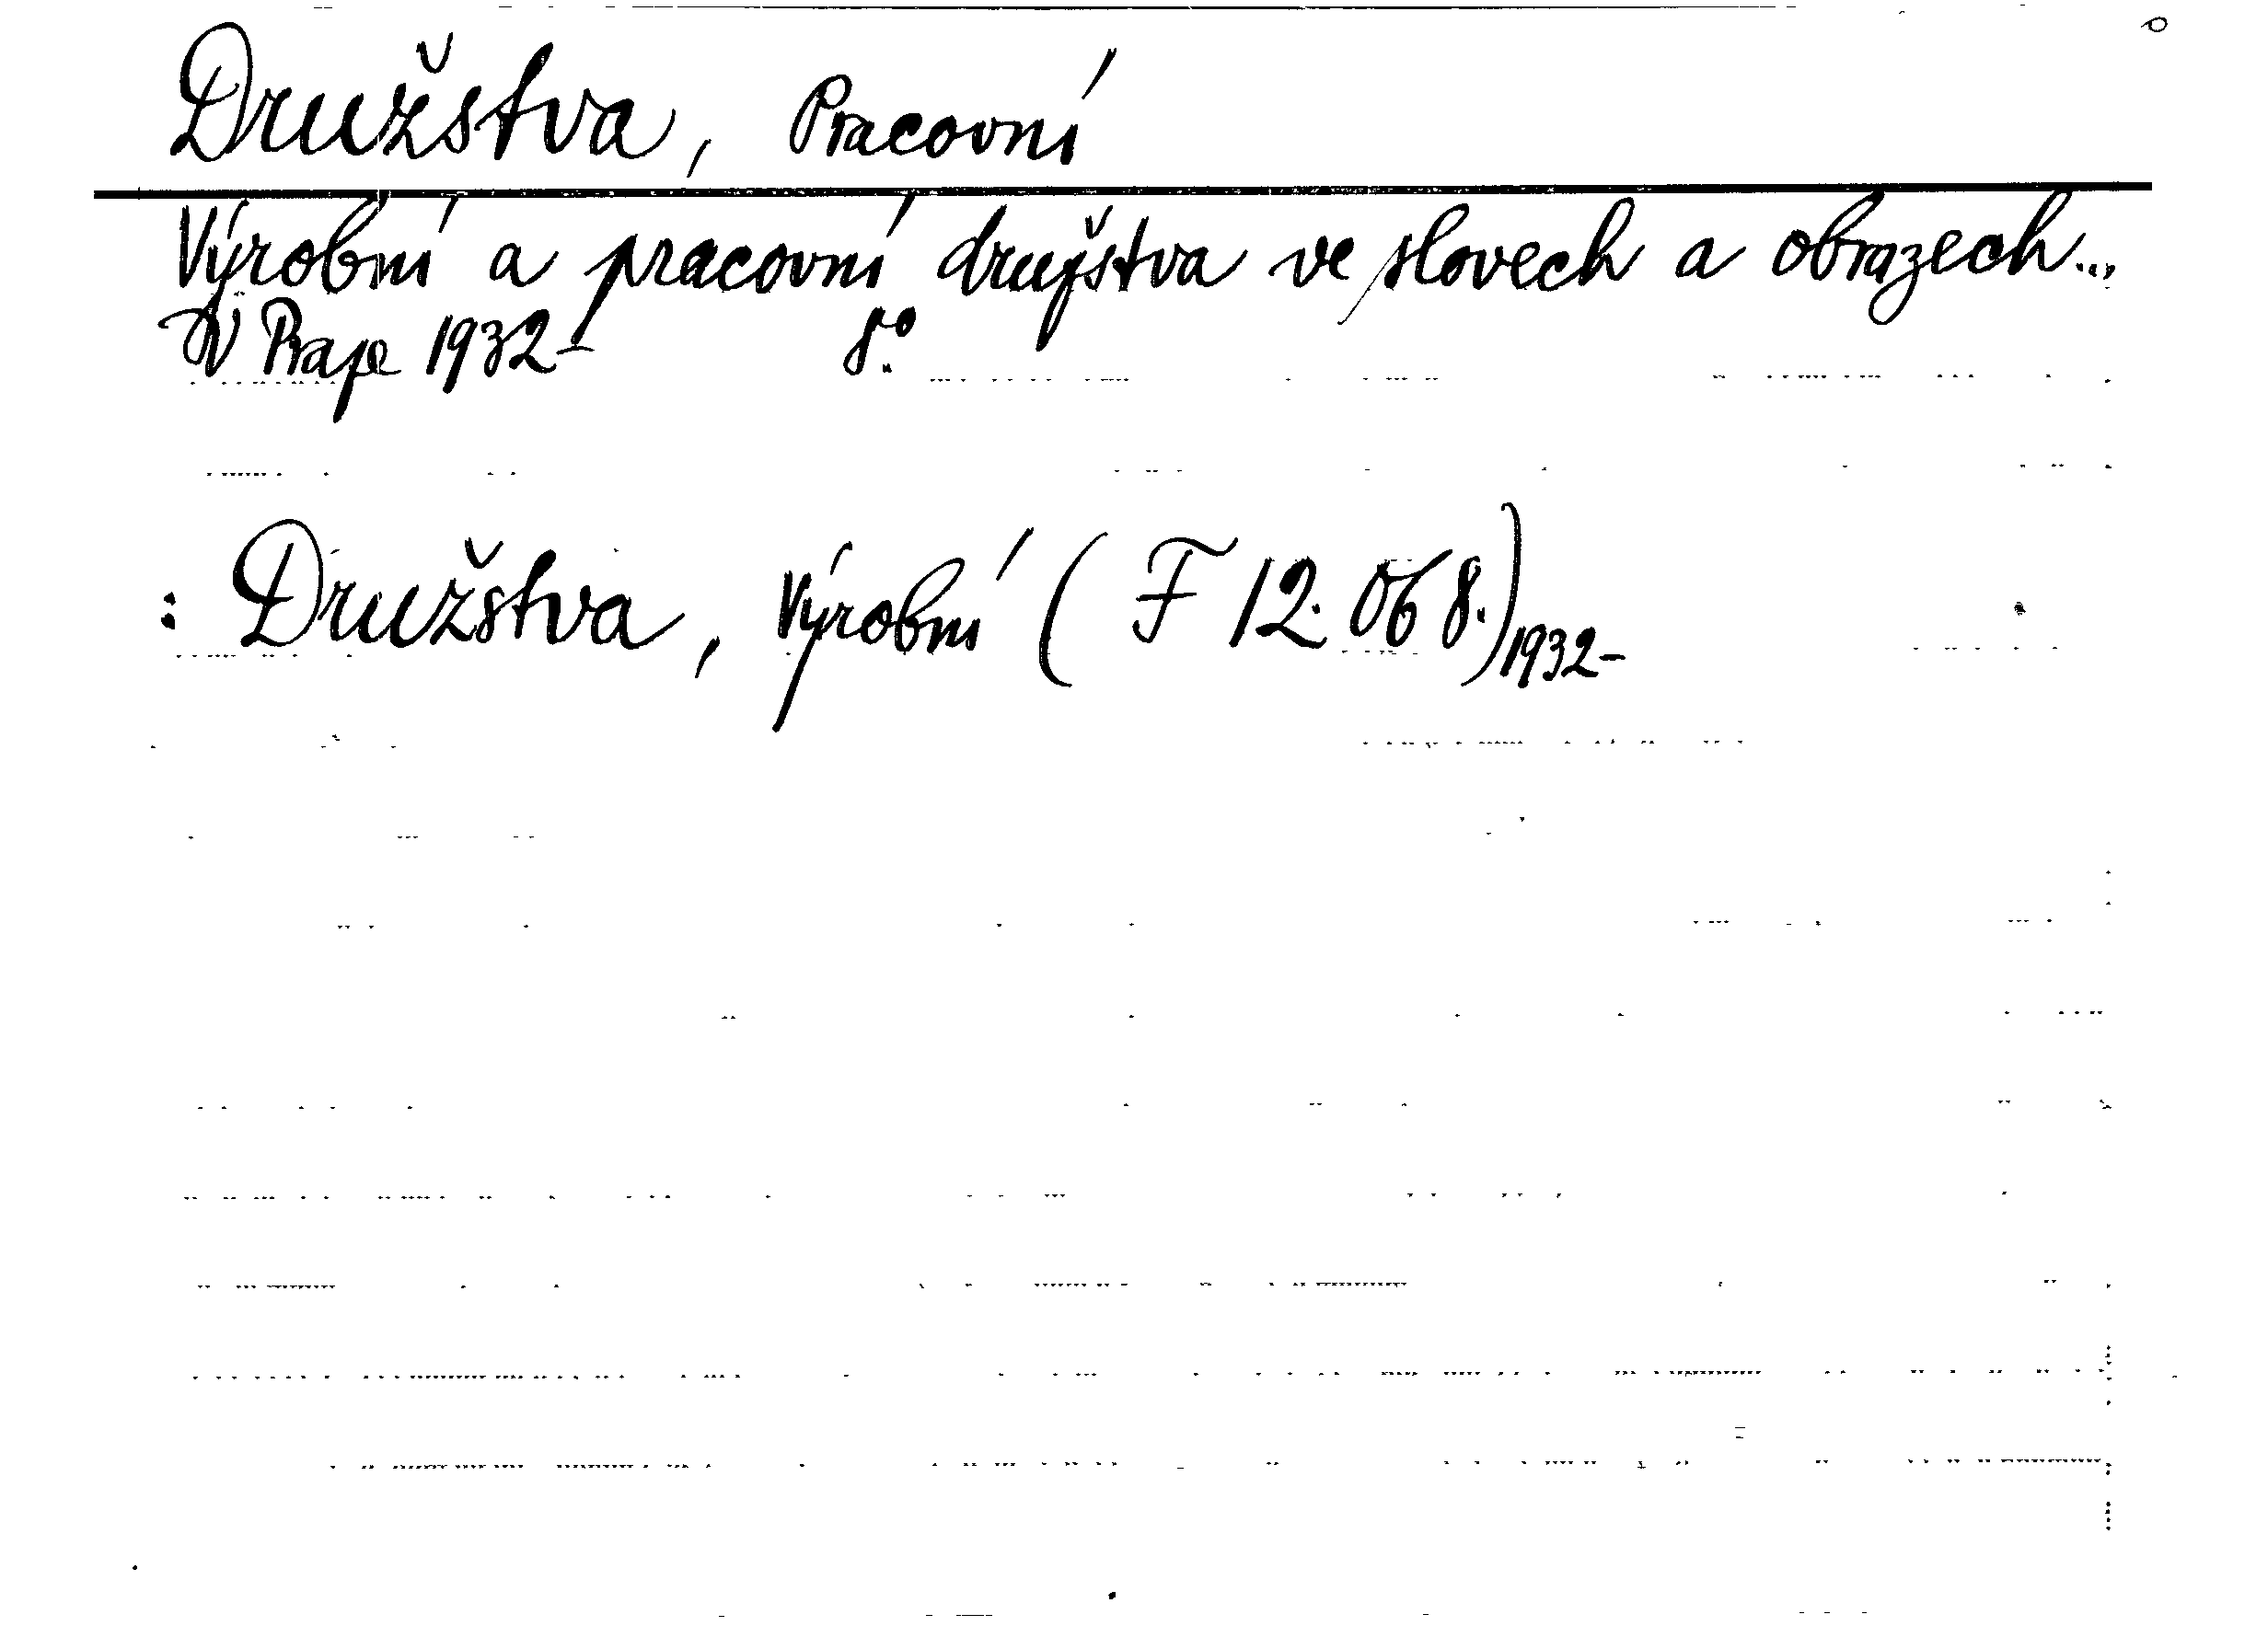 Družstva, Pracovní
Výrobní a pracovní družstva ve slovech a obrazech...
V Praze 1932- 8°.
: Družstva, Výrobní (F 12.068.) 1932-